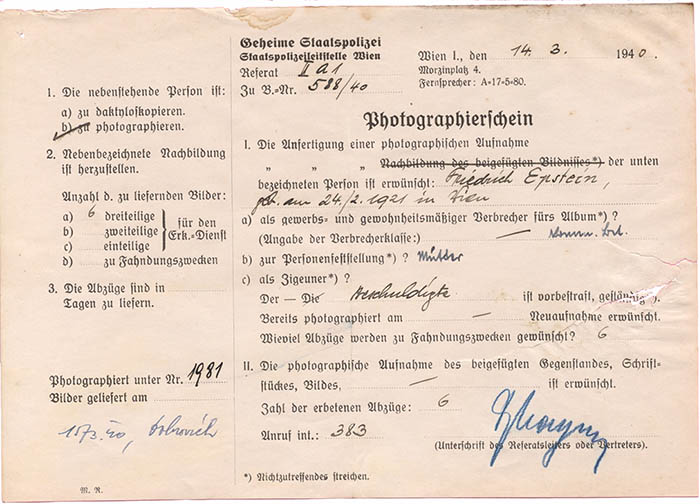 1. Die nebenstehende Person ist:
a) zu daktyloskopieren.
b) zu photographieren.
2. Nebenbezeichnete Nachbildung
ist herzustellen.
Anzahl d. zu liefernden Bilder:
a) 6 dreiteilige
b) zweiteilige
c) einteilige
für den
Erk.-Dienst
d) zu Fahndungszwecken
3. Die Abzüge sind in
Tagen zu liefern.
Photographiert unter Nr. 1981
Bilder geliefert am
M. R.
Geheime Staatspolizei
Staatspolizeileitstelle Wien
Referat II A 1
Zu B.-Nr. 588/40
Wien I., den 14. 3. 1940.
Morzinplatz 4.
Fernsprecher: A-17-5-80.
Photographierschein
I. Die Anfertigung einer photographischen Aufnahme
" " " Nachbildung des beigefügten Bildnisses*) der unten
bezeichneten Person ist erwünscht: Friedrich Epstein,
geb. am 24./2. 1921 in Wien
a) als gewerbs- und gewohnheitsmäßiger Verbrecher fürs Album*) ?
(Angabe der Verbrecherklasse:) —
b) zur Personenfeststellung*) ?
c) als Zigeuner*) ?
Der — Die Beschuldigte ist vorbestraft, geständig*).
Bereits photographiert am — Neuaufnahme erwünscht.
Wieviel Abzüge werden zu Fahndungszwecken gewünscht? 6
II. Die photographische Aufnahme des beigefügten Gegenstandes, Schrift-
stückes, Bildes, — ist erwünscht.
Zahl der erbetenen Abzüge: 6
Anruf int.: 383
(Unterschrift des Referatsleiters oder Vertreters).
*) Nichtzutreffendes streichen.